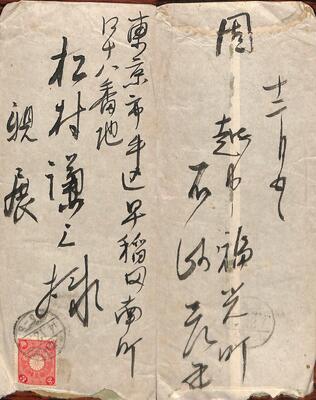 東京市牛込早稲田南町
四十八番地
松村謙三様
親展
十二月九日
越中福光町
石崎